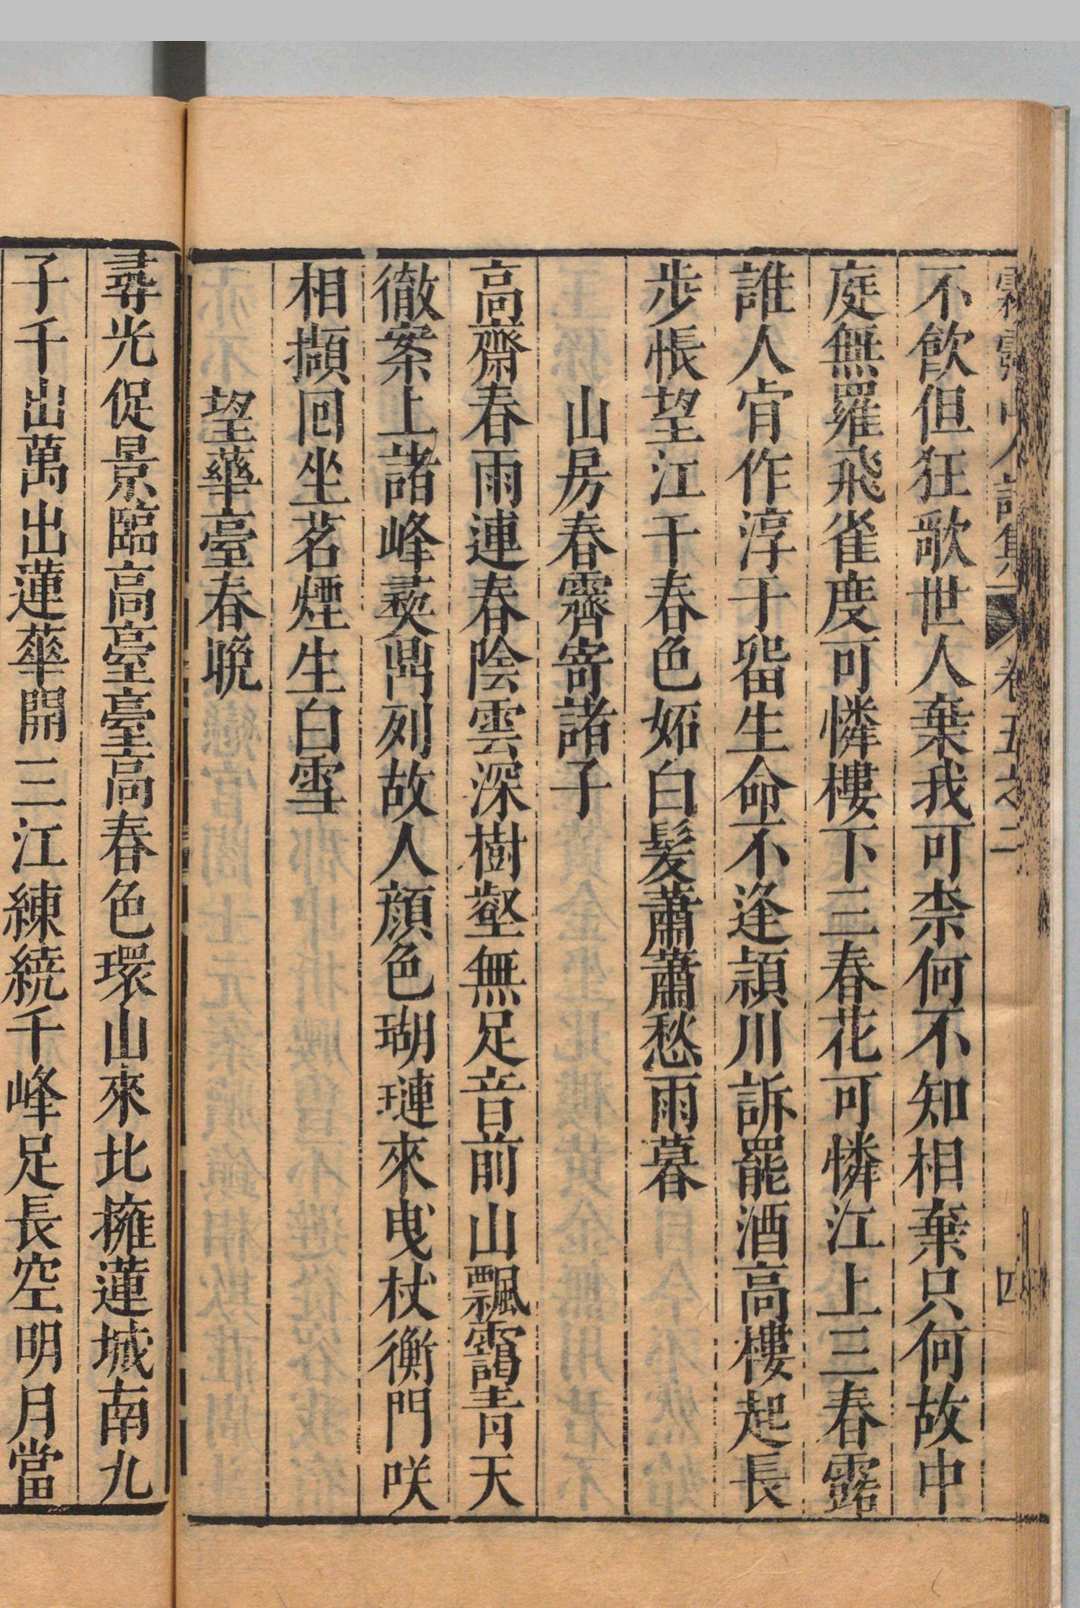 霧靈山人詩集 卷五之二 四
不飲但狂歌世人棄我可柰何不知相棄只何故中
庭無羅飛雀度可憐樓下三春花可憐江上三春露
誰人肯作淳于畱生命不逢潁川訴罷酒高樓起長
步悵望江干春色妬白髮蕭蕭愁雨暮
山房春霽寄諸子
高齋春雨連春陰雲深樹壑無足音前山飄靄青天
徹案上諸峰彝鼎列故人顏色瑚璉來曳杖衡門咲
相擷囘坐茗煙生白雪
望華臺春晚
尋光促景臨高臺臺高春色環山來北擁蓮城南九
子千出萬出蓮華開三江練繞千峰足長空明月當